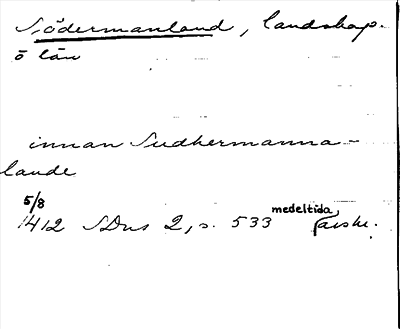 Södermanland, landskap.
ö län
innan Sudhermanna-
lande
5/8
1412 SDns 2, s. 533 medeltida avskr.